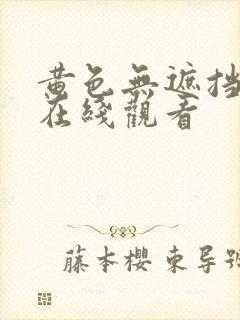 黄色無遮挡
在綫觀看
藤本櫻 東导